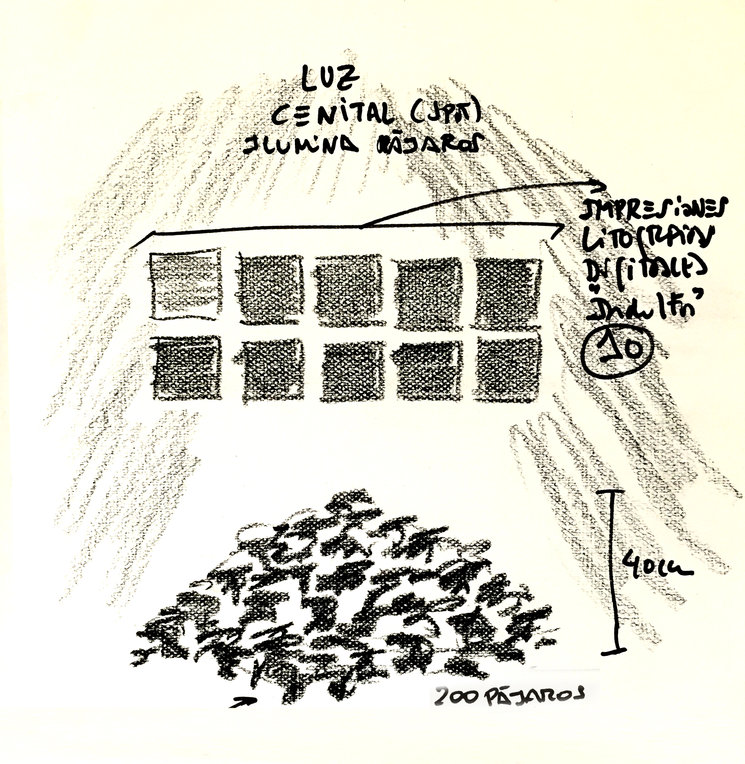 LUZ
CENITAL (SPOT)
ILUMINA PÁJAROS
IMPRESIONES
DIGITALES
10
40cm
200 PÁJAROS